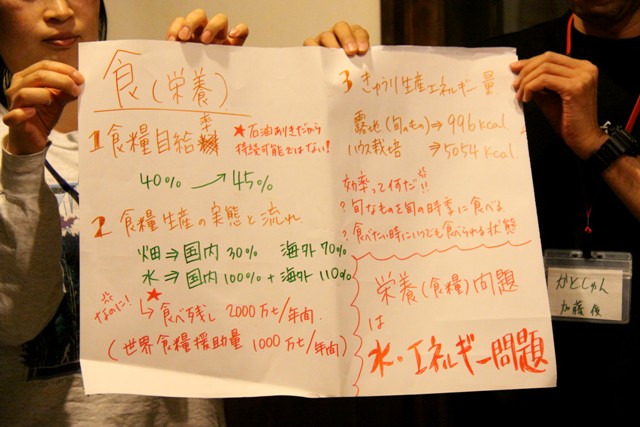 食(栄養)
1 食糧自給率
★石油ありきだから
持続可能ではない!
40% → 45%
2 食糧生産の実態と流れ
畑⇒国内30% 海外70%
水⇒国内100%+海外110%
なのに! ★
↳食べ残し 2000万t/年間
(世界食糧援助量 1000万t/年間)
3 きゅうり生産エネルギー量
露地(旬のもの)⇒996kcal
ハウス栽培 ⇒5054kcal
効率って何だ!!
? 旬なものを旬の時季に食べる
? 食べたい時にいつでも食べられる状態
栄養(食糧)問題
は
水・エネルギー問題
かとしゃん
加藤 俊